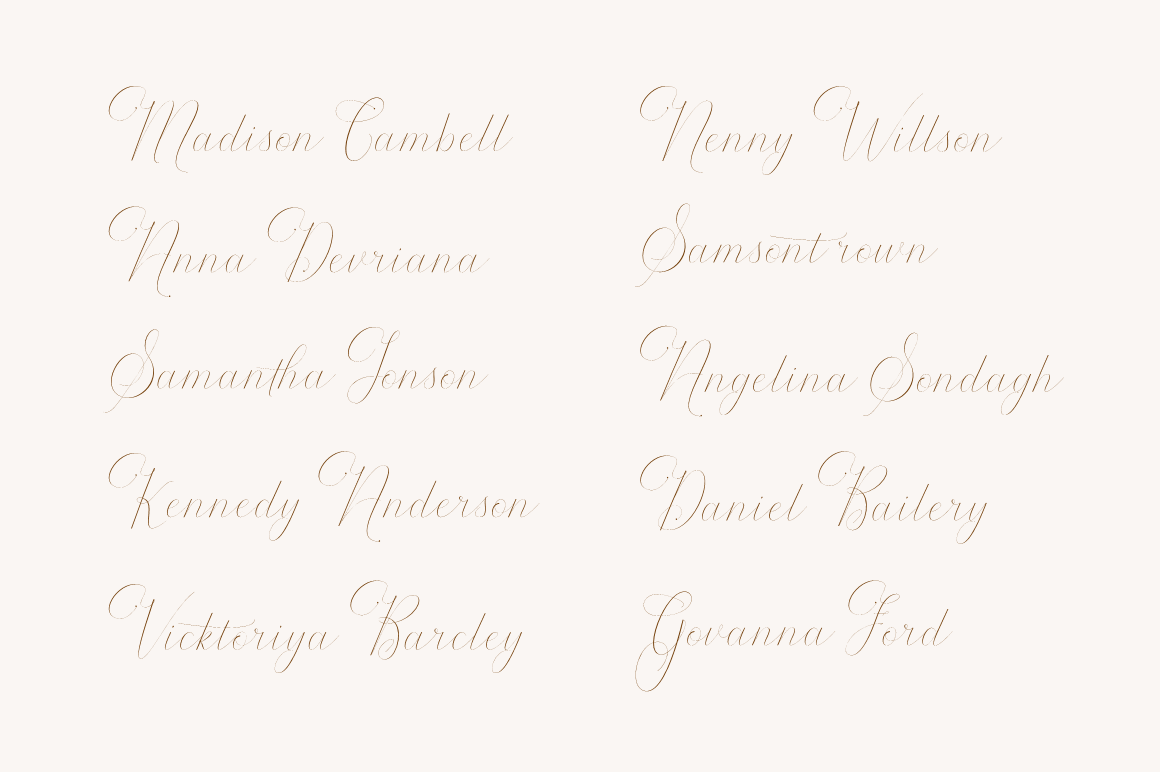 Madison Cambell
Anna Devriana
Samantha Jonson
Kennedy Anderson
Vicktoriya Barcley
Nenny Willson
Samsont rown
Angelina Sondagh
Daniel Bailery
Govanna Ford